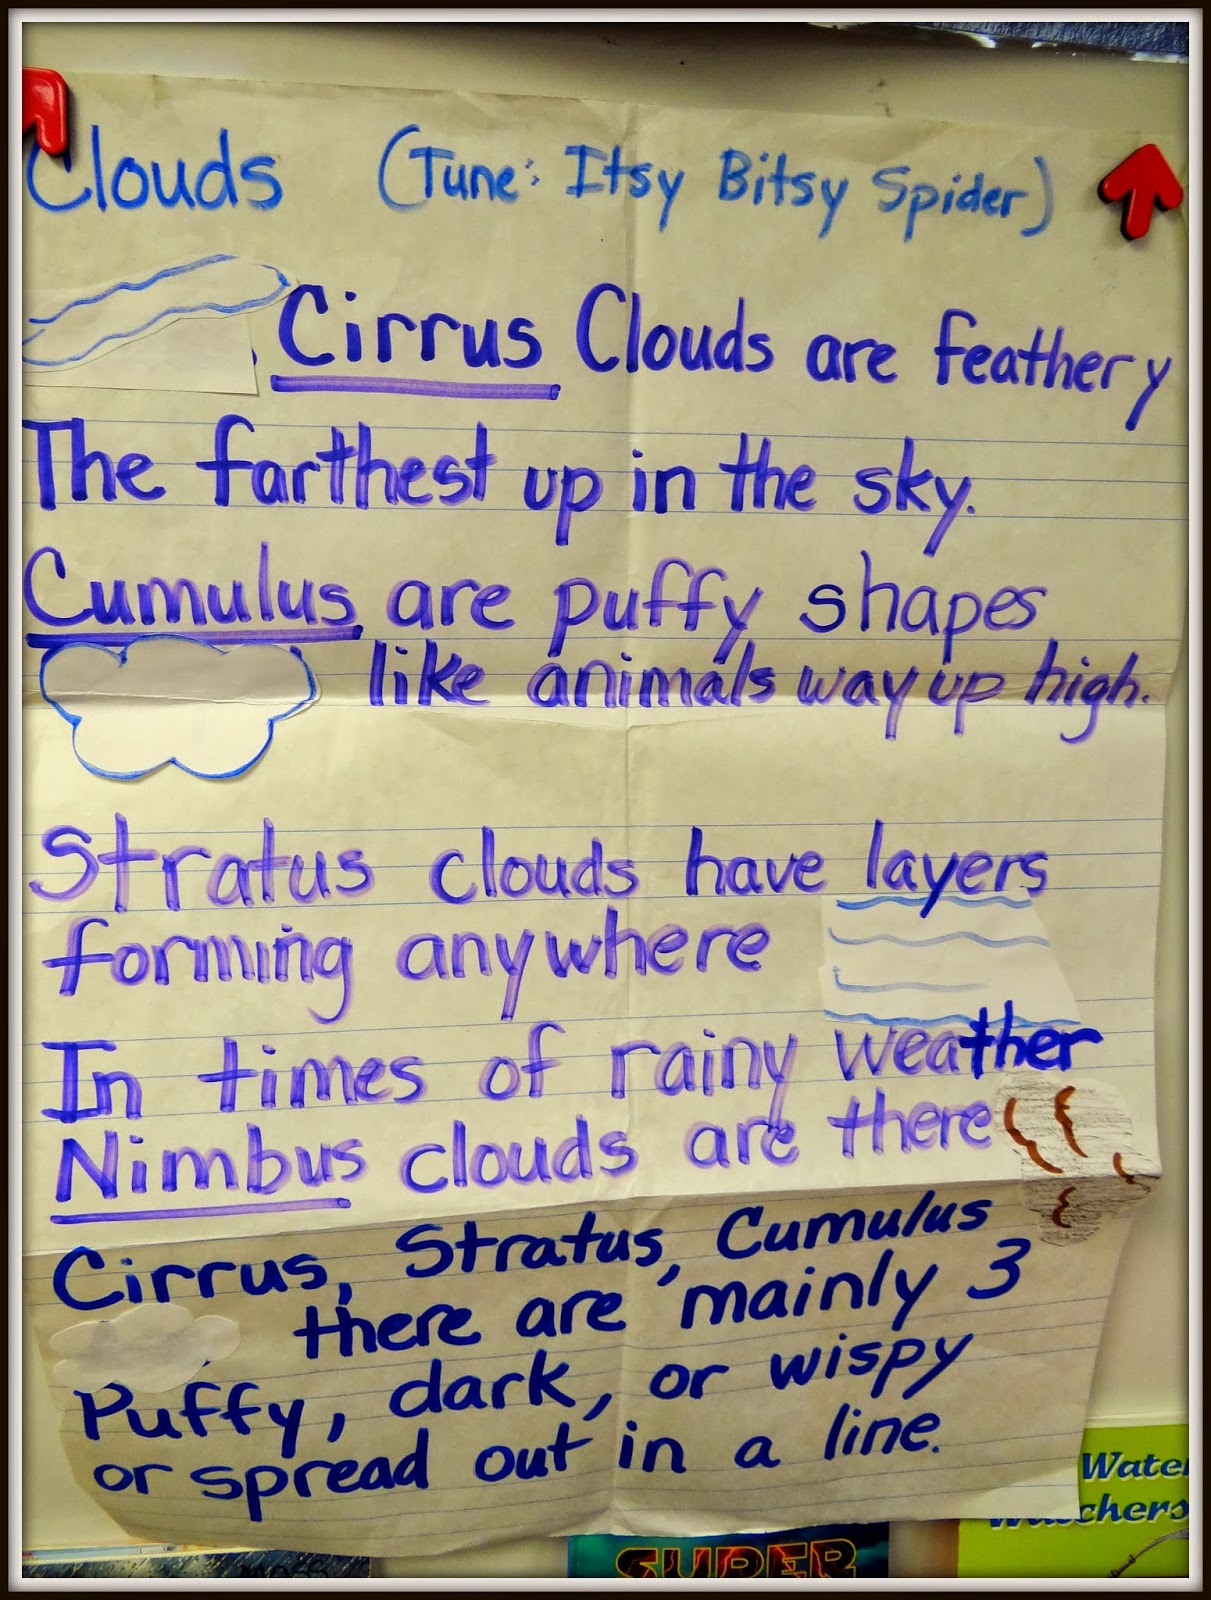 Clouds (Tune: Itsy Bitsy Spider)
Cirrus Clouds are feathery
The farthest up in the sky.
Cumulus are puffy shapes
like animals way up high.
Stratus clouds have layers
forming anywhere
In times of rainy weather
Nimbus clouds are there
Cirrus, Stratus, Cumulus
there are mainly 3
Puffy, dark, or wispy
or spread out in a line.
Water
Watchers
SUPER